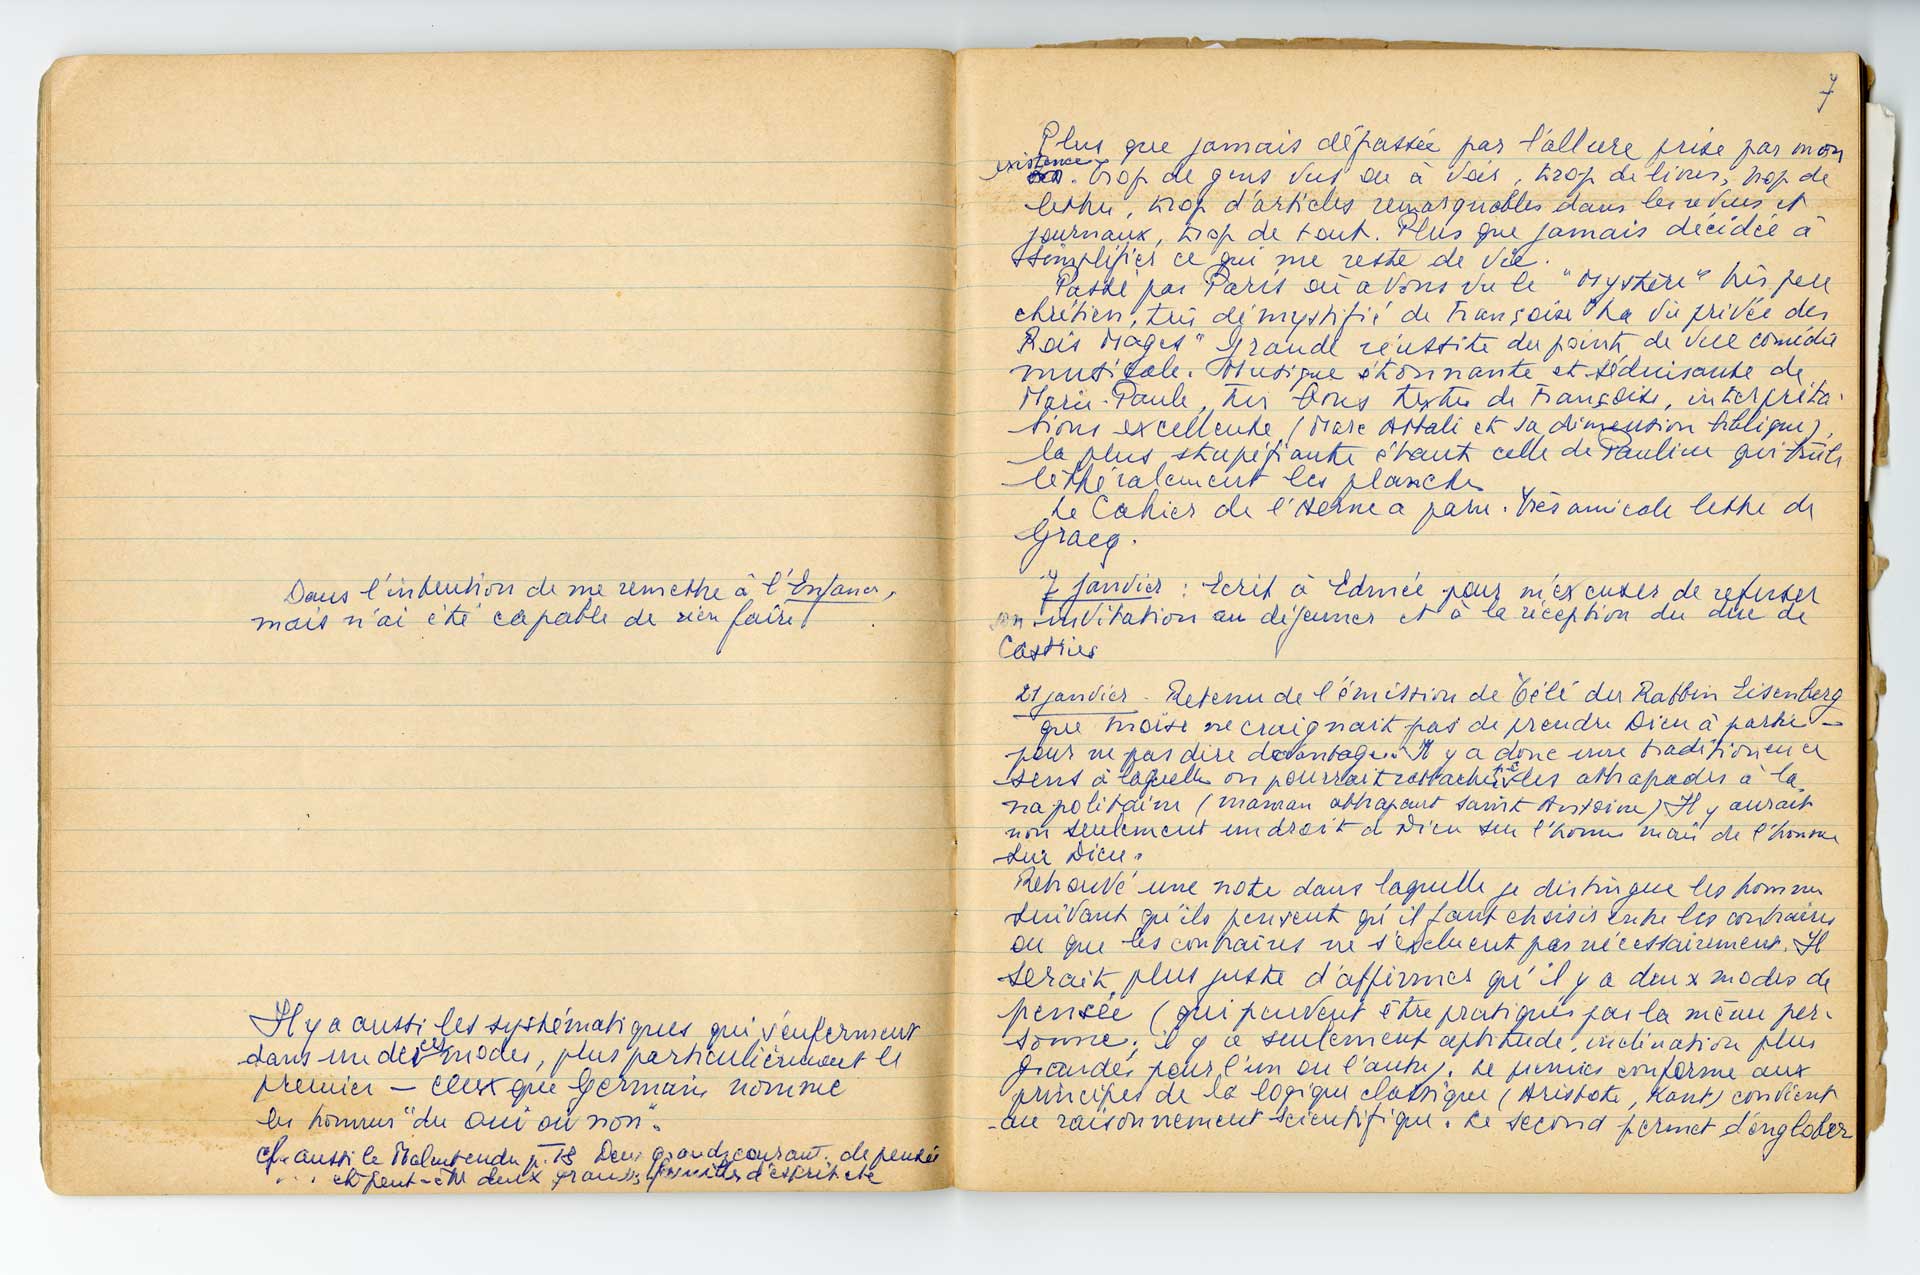 Dans l'intention de me remettre à l'Enfance,
mais n'ai été capable de rien faire
Il y a aussi les systématiques qui s'enferment
dans un de ces modes, plus particulièrement le
premier — ceux que Germain nomme
les hommes "du oui ou non".
cf. aussi le Malentendu p. 18 Deux grands courants de pensée
et peut-être deux grandes familles d'esprit etc
7
Plus que jamais dépassée par l'allure prise par mon
existence. Trop de gens vus ou à voir, trop de livres, trop de
lettres, trop d'articles remarquables dans les revues et
journaux, trop de tout. Plus que jamais décidée à
simplifier ce qui me reste de vie.
Passé par Paris où avons vu le "Mystère" très peu
chrétien, très démystifié de Françoise "La vie privée des
Rois Mages" Grande réussite du point de vue comédie
musicale. Musique étonnante et séduisante de
Marie-Paule, très bons textes de Françoise, interpréta-
tions excellente (Marc Attali et sa dimension biblique),
la plus stupéfiante étant celle de Pauline qui brûle
littéralement les planches
Le Cahier de l'Herne a paru. Très amicale lettre de
Gracq.
7 janvier : Ecrit à Edmée pour m'excuser de refuser
son invitation au déjeuner et à la réception du duc de
Castries
21 janvier - Retenu de l'émission de Télé du Rabbin Eisenberg
que Moïse ne craignait pas de prendre Dieu à partie —
pour ne pas dire davantage. Il y a donc une tradition en ce
sens à laquelle on pourrait rattacher les attrapades à la
napolitaine (maman attrapant saint Antoine) Il y aurait
non seulement un droit de Dieu sur l'homme mais de l'homme
sur Dieu.
Retrouvé une note dans laquelle je distingue les hommes
suivant qu'ils pensent qu'il faut choisir entre les contraires
ou que les contraires ne s'excluent pas nécessairement. Il
serait plus juste d'affirmer qu'il y a deux modes de
pensée (qui peuvent être pratiqués par la même per-
sonne; il y a seulement aptitude, inclination plus
grandes pour l'un ou l'autre). Le premier conforme aux
principes de la logique classique (Aristote, Kant) convient
au raisonnement scientifique. Le second permet d'englober